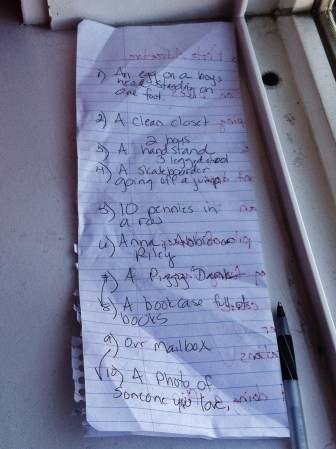 1) An egg on a boys
head standing on
one foot.
2) A clean closet
2 boys
3) A handstand
3 legged stool
4) A skateboarder
going off a jump
5) 10 pennies in
a row
6) Anna
Riley
7) A Piggy
8) A bookcase full of
books
9) Our mailbox
10) A Photo of
Someone you love,